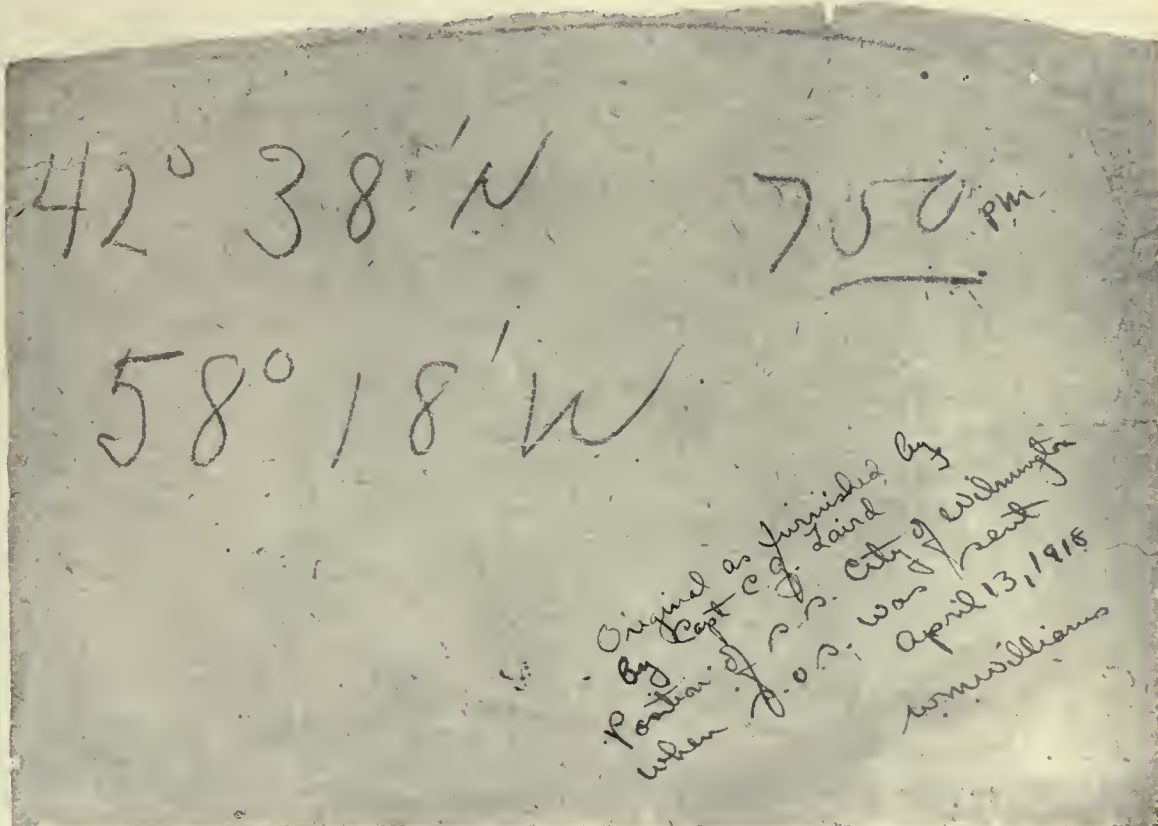 42° 38' N 750 PM
58° 18' W
Original as furnished by
By Capt C.J. Laird
Position of S.S. City of Wilmington
when S.O.S. was sent
April 13, 1918
WmWilliams